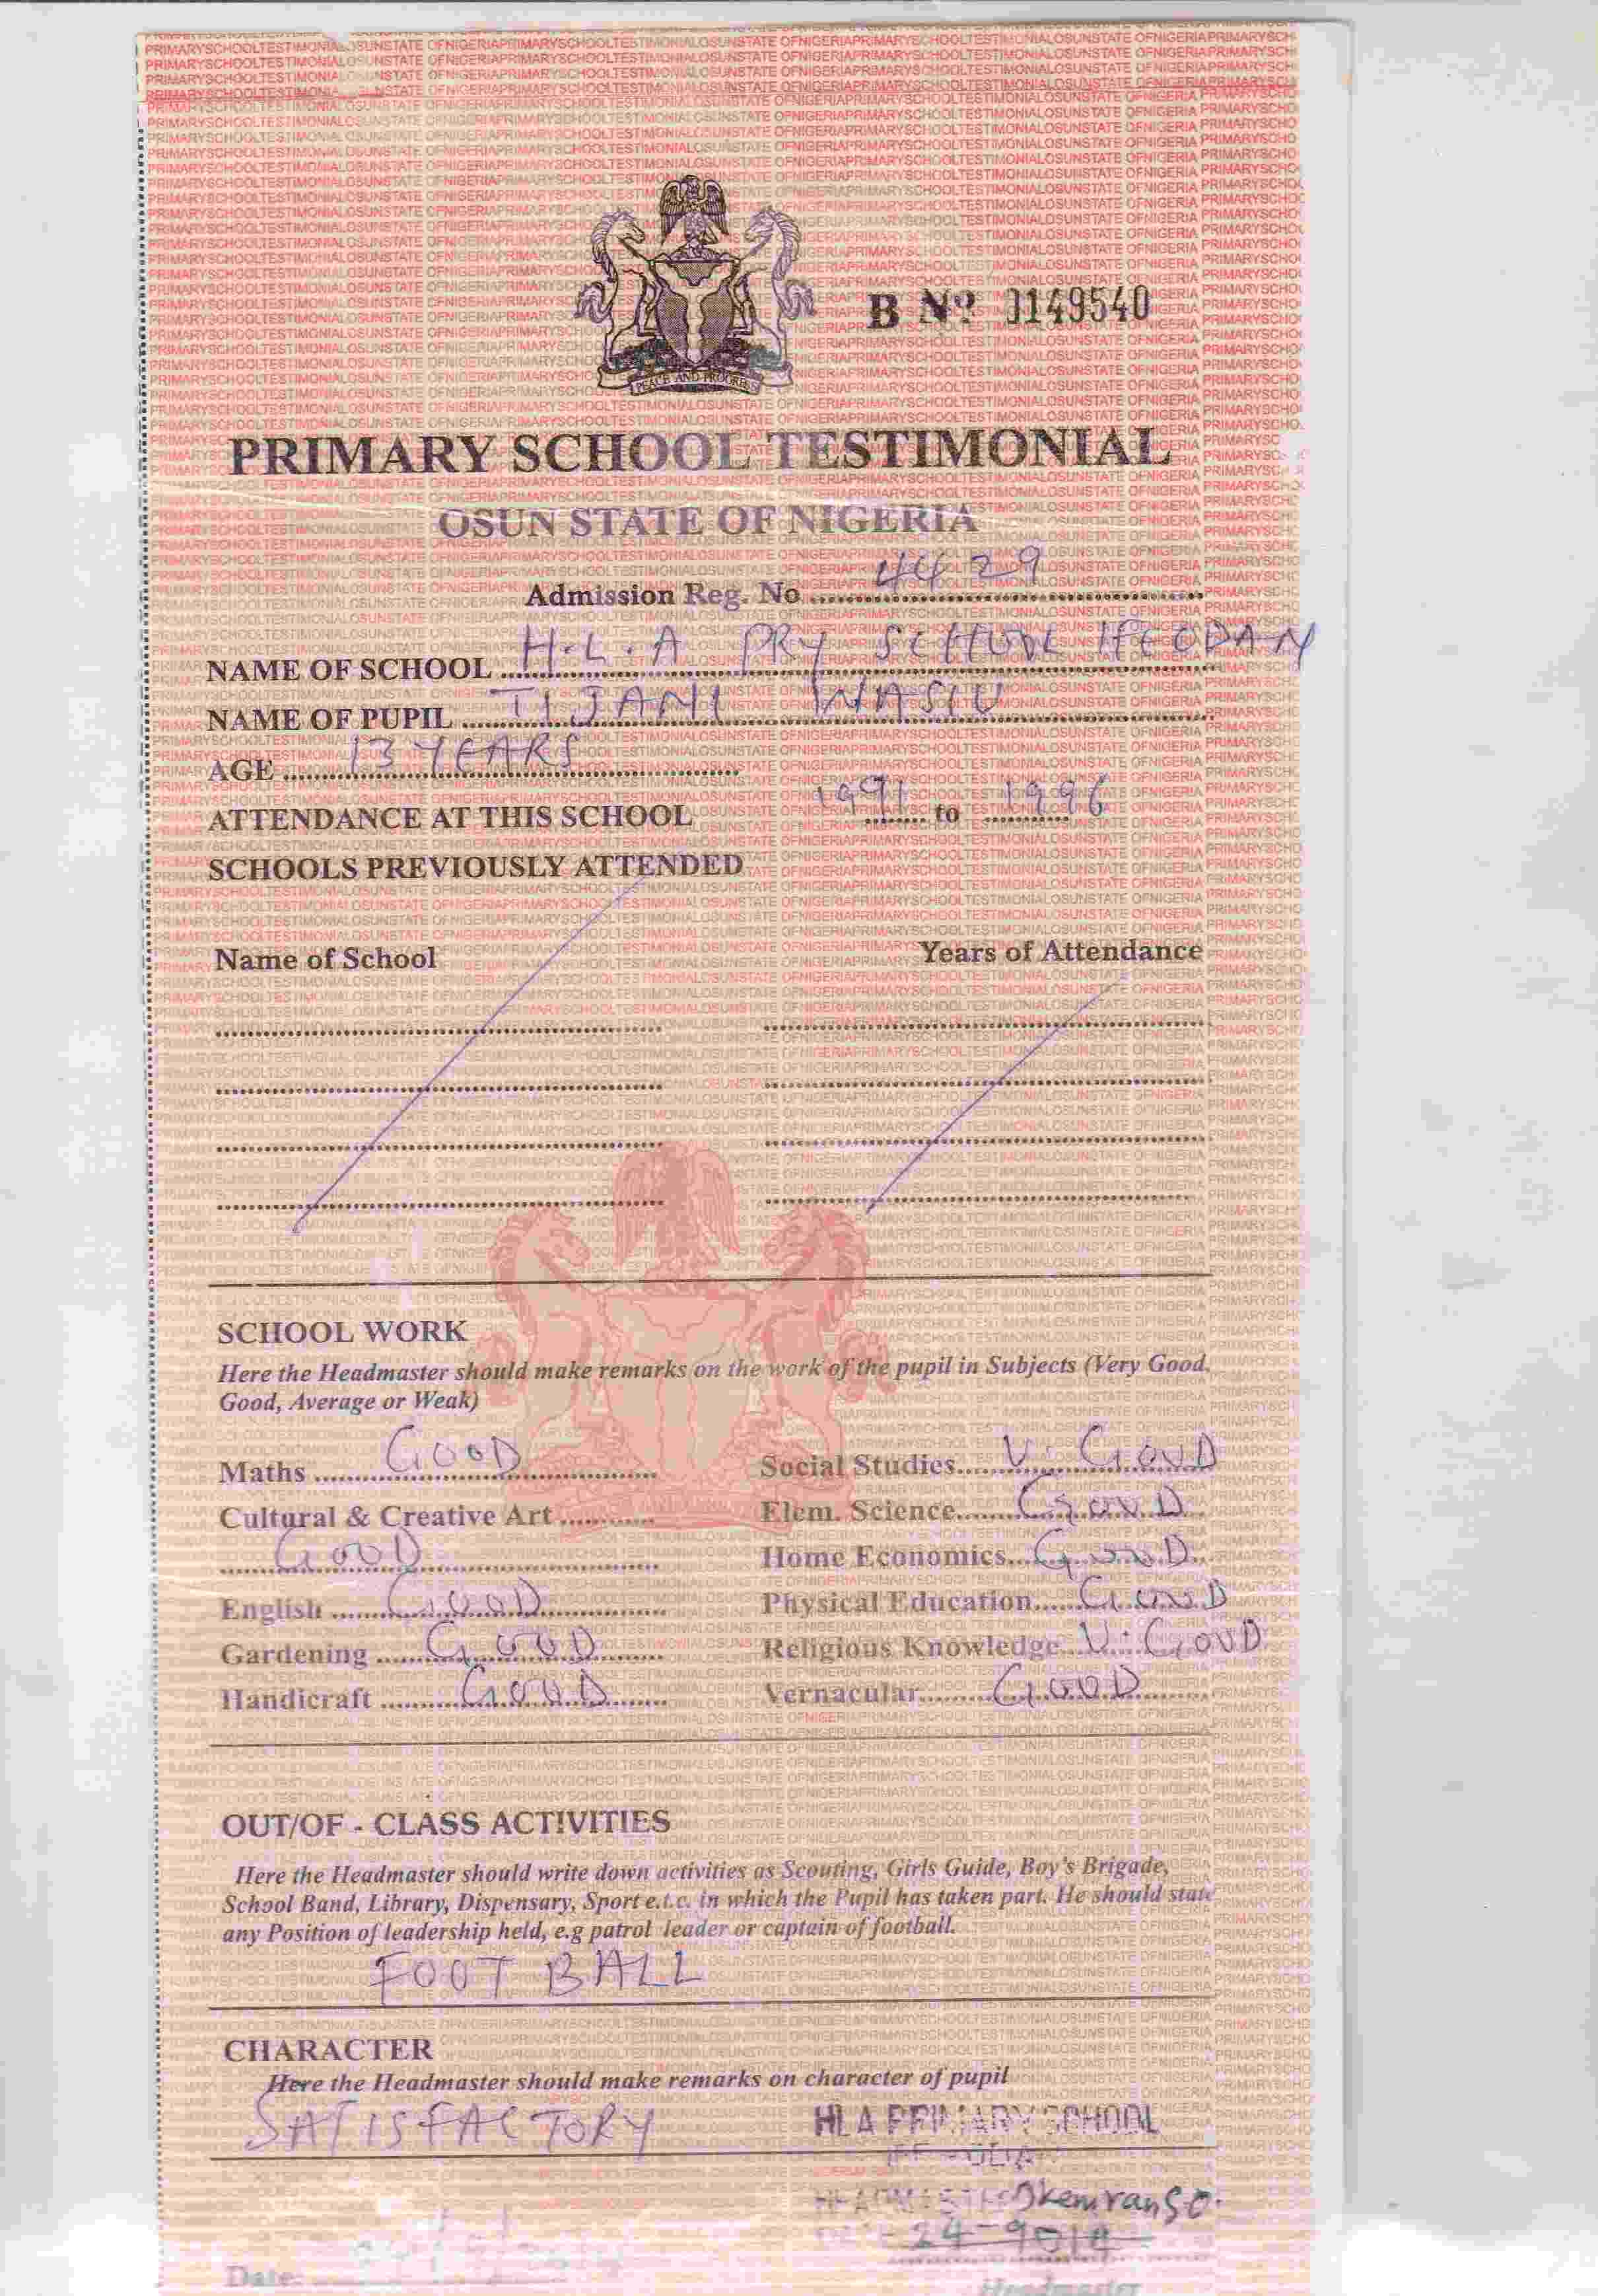 PEACE AND PROGRESS
B No 0149540
PRIMARY SCHOOL TESTIMONIAL
OSUN STATE OF NIGERIA
Admission Reg. No 4429
NAME OF SCHOOL H.L.A PRY SCHOOL IFEODAN
NAME OF PUPIL TIJANI WASIU
AGE 13 YEARS
ATTENDANCE AT THIS SCHOOL 1991 to 1996
SCHOOLS PREVIOUSLY ATTENDED
Name of School Years of Attendance
SCHOOL WORK
Here the Headmaster should make remarks on the work of the pupil in Subjects (Very Good,
Good, Average or Weak)
Maths GOOD Social Studies V. GOOD
Cultural & Creative Art Elem. Science GOOD
GOOD Home Economics GOOD
English GOOD Physical Education GOOD
Gardening GOOD Religious Knowledge V. GOOD
Handicraft GOOD Vernacular GOOD
OUT/OF - CLASS ACTIVITIES
Here the Headmaster should write down activities as Scouting, Girls Guide, Boy's Brigade,
School Band, Library, Dispensary, Sport e.t.c. in which the Pupil has taken part. He should state
any Position of leadership held, e.g patrol leader or captain of football.
FOOT BALL
CHARACTER
Here the Headmaster should make remarks on character of pupil
SATISFACTORY HLA PRIMARY SCHOOL
HEADMASTER
Date:
Headmaster